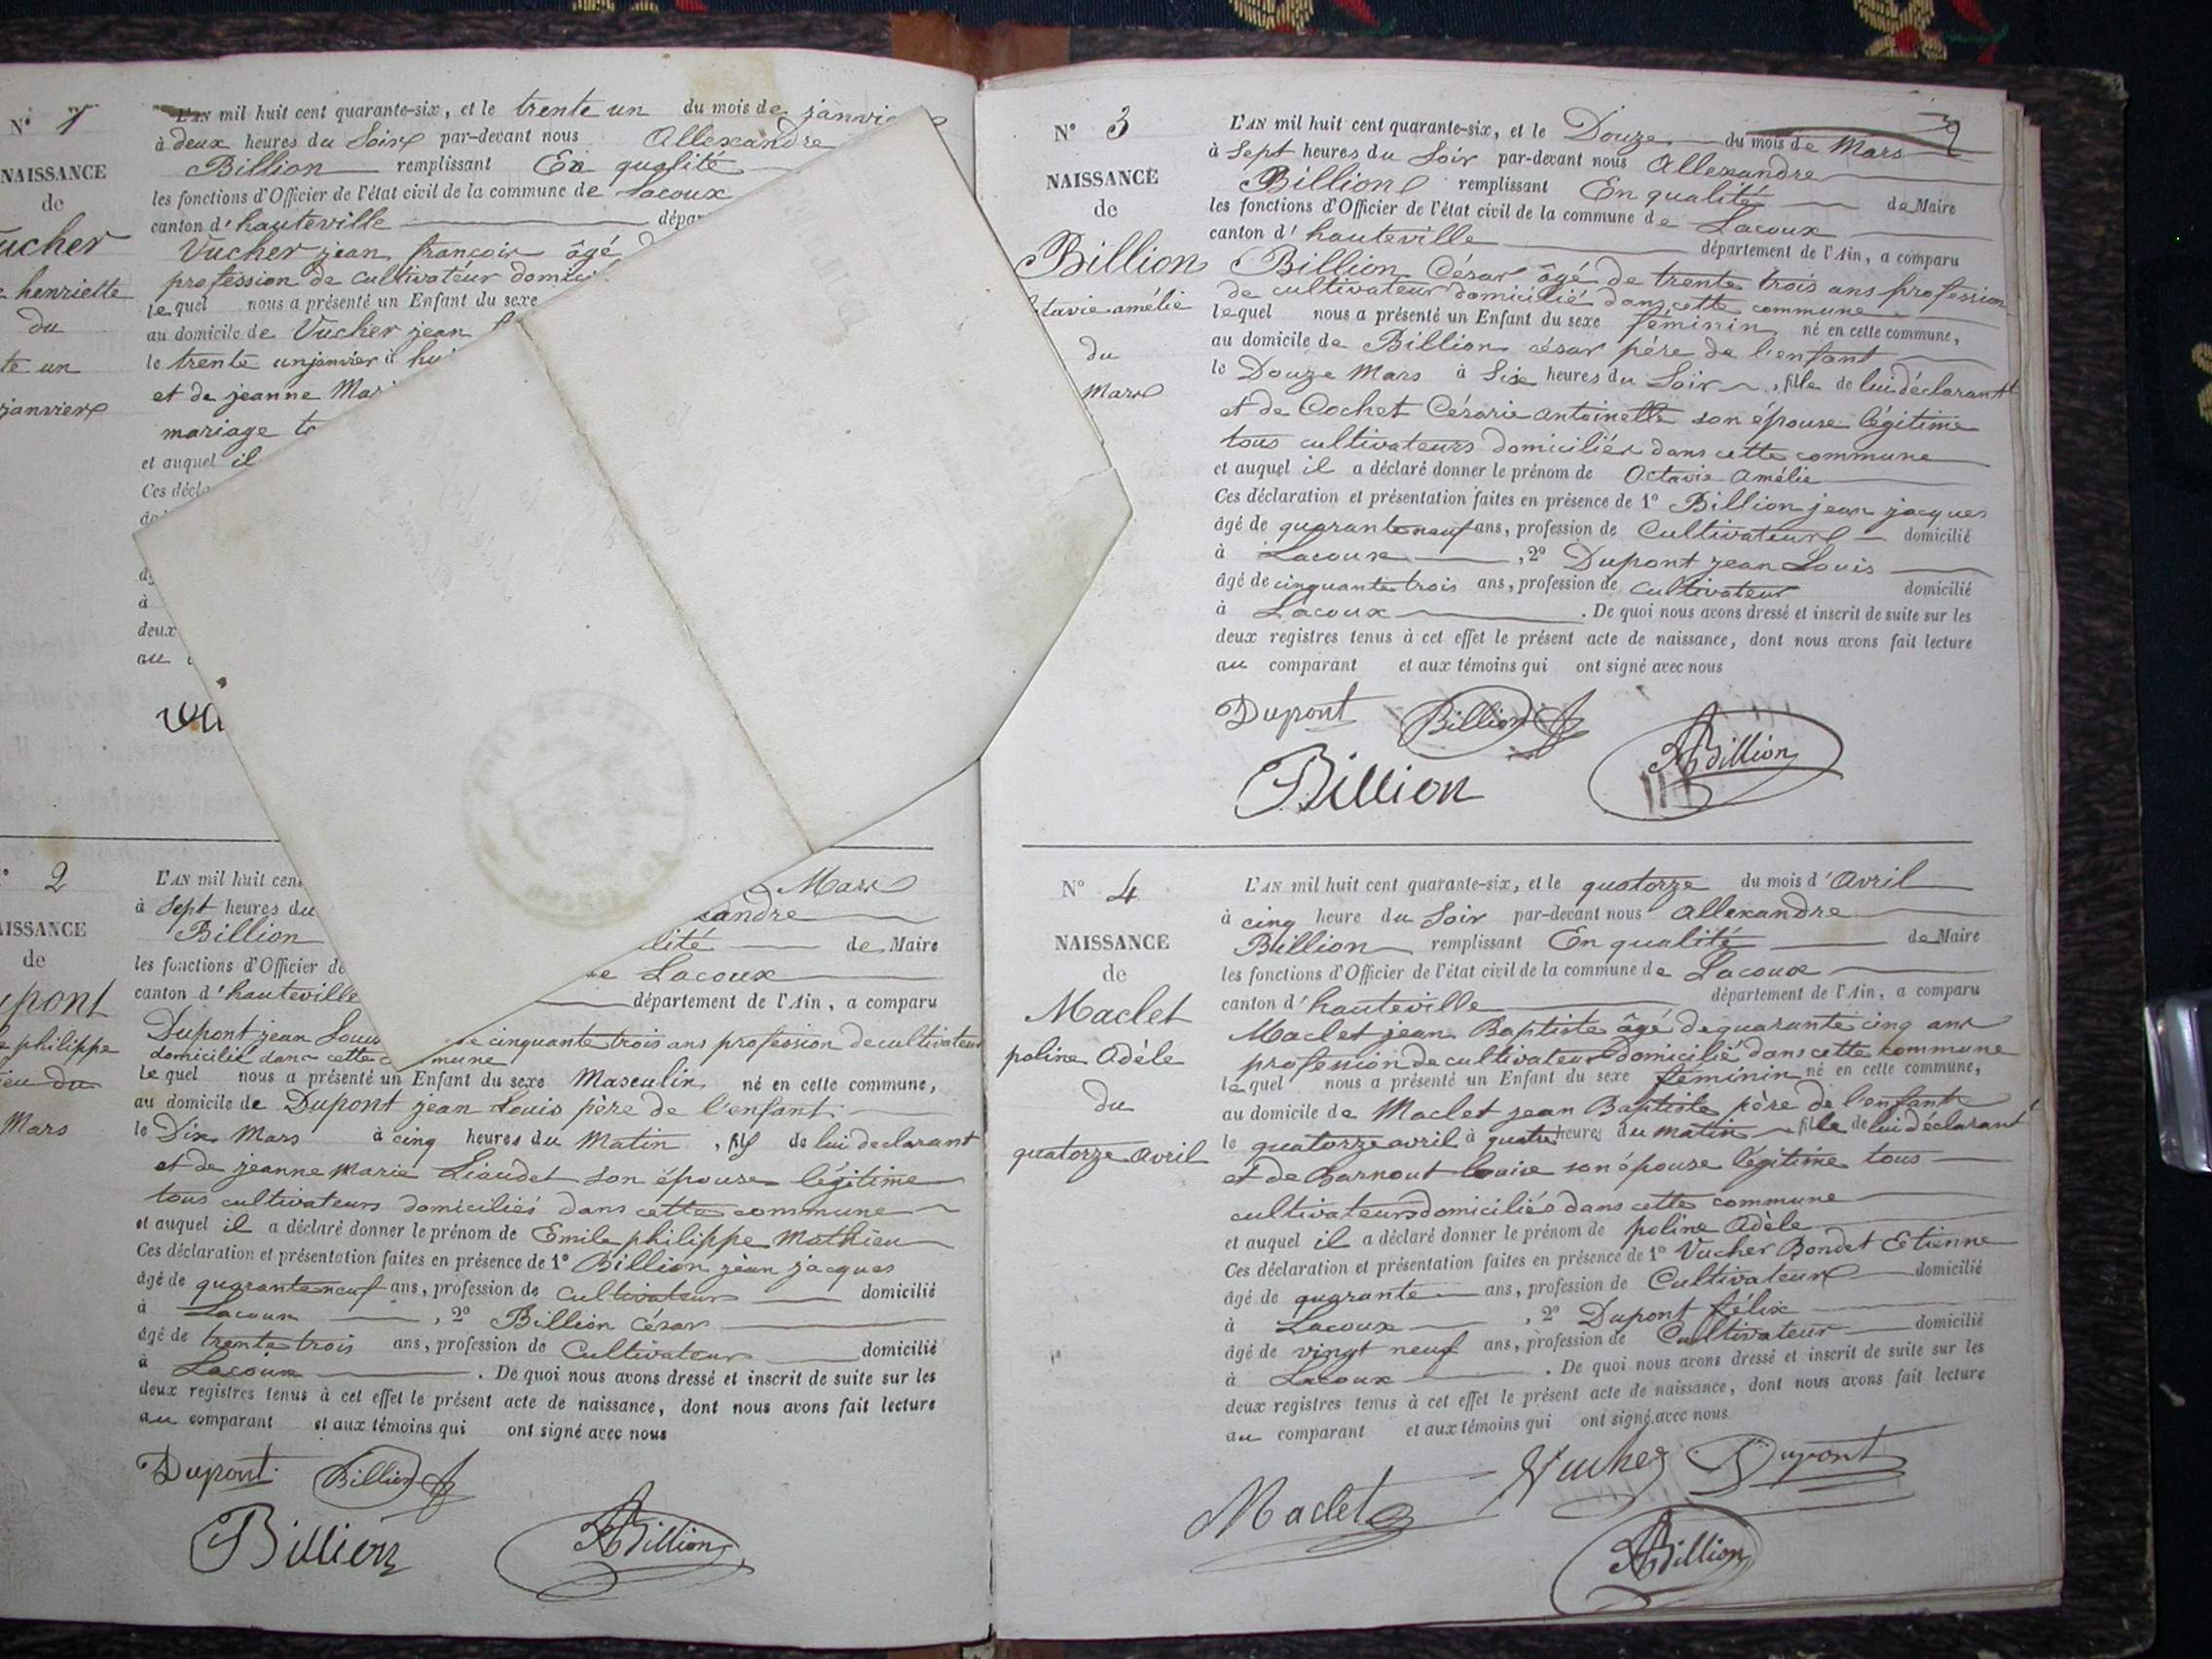 N° 1
NAISSANCE
de
ucher
henriette
du
te un
janvier
L'AN mil huit cent quarante-six, et le trente un du mois de janvie
à deux heures du Soir par-devant nous Allexandre
Billion remplissant En qualité
les fonctions d'Officier de l'état civil de la commune de Lacoux
canton d'hauteville dépar
Vucher jean françois âgé
profession de cultivateur domici
lequel nous a présenté un Enfant du sexe
au domicile de Vucher jean
le trente un janvier à hui
et de jeanne Mar
mariage
et auquel il
Ces décla
à
deux
au
2
AISSANCE
de
upont
philippe
ieu du
Mars
L'AN mil huit cen Mars
à Sept heures du xandre
Billion lité de Maire
les fonctions d'Officier de Lacoux
canton d'hauteville département de l'Ain, a comparu
Dupont jean Louis cinquante trois ans profession de cultivateur
domicilié dans cette mune
lequel nous a présenté un Enfant du sexe Masculin né en cette commune,
au domicile de Dupont jean Louis père de l'enfant
le Dix Mars à cinq heures du Matin, fils de lui declarant
et de jeanne Marie Liaudet son épouse légitime
tous cultivateurs domiciliés dans cette commune
et auquel il a déclaré donner le prénom de Emile philippe Mathieu
Ces déclaration et présentation faites en présence de 1° Billion jean jacques
âgé de quarante neuf ans, profession de Cultivateur domicilié
à Lacoux, 2° Billion César
âgé de trente trois ans, profession de Cultivateur domicilié
à Lacoux. De quoi nous avons dressé et inscrit de suite sur les
deux registres tenus à cet effet le présent acte de naissance, dont nous avons fait lecture
au comparant et aux témoins qui ont signé avec nous
Dupont Billion
Billion ABillion
N° 3
NAISSANCE
de
Billion
tavie amélie
du
Mars
L'AN mil huit cent quarante-six, et le Douze du mois de Mars
à Sept heures du Soir par-devant nous Allexandre
Billion remplissant En qualité de Maire
les fonctions d'Officier de l'état civil de la commune de Lacoux
canton d'hauteville département de l'Ain, a comparu
Billion César âgé de trente trois ans profession
de cultivateur domicilié dans cette commune
lequel nous a présenté un Enfant du sexe féminin né en cette commune,
au domicile de Billion césar père de l'enfant
le Douze Mars à Six heures du Soir, fille de lui déclarant
et de Cochet Césarie antoinette son épouse légitime
tous cultivateurs domiciliés dans cette commune
et auquel il a déclaré donner le prénom de Octavie Amélie
Ces déclaration et présentation faites en présence de 1° Billion jean jacques
âgé de quarante neuf ans, profession de Cultivateur domicilié
à Lacoux, 2° Dupont jean Louis
âgé de cinquante trois ans, profession de Cultivateur domicilié
à Lacoux. De quoi nous avons dressé et inscrit de suite sur les
deux registres tenus à cet effet le présent acte de naissance, dont nous avons fait lecture
au comparant et aux témoins qui ont signé avec nous
Dupont Billion
Billion ABillion
N° 4
NAISSANCE
de
Maclet
poline Adèle
du
quatorze avril
L'AN mil huit cent quarante-six, et le quatorze du mois d'Avril
à cinq heure du Soir par-devant nous Allexandre
Billion remplissant En qualité de Maire
les fonctions d'Officier de l'état civil de la commune de Lacoux
canton d'hauteville département de l'Ain, a comparu
Maclet jean Baptiste âgé de quarante cinq ans
profession de cultivateur domicilié dans cette commune
lequel nous a présenté un Enfant du sexe féminin né en cette commune,
au domicile de Maclet jean Baptiste père de l'enfant
le quatorze avril à quatre heures du matin fille de lui déclarant
et de Barnout Louise son épouse légitime tous
cultivateurs domiciliés dans cette commune
et auquel il a déclaré donner le prénom de poline Adèle
Ces déclaration et présentation faites en présence de 1° Vucher Bondet Etienne
âgé de quarante ans, profession de Cultivateur domicilié
à Lacoux, 2° Dupont félix
âgé de vingt neuf ans, profession de Cultivateur domicilié
à Lacoux. De quoi nous avons dressé et inscrit de suite sur les
deux registres tenus à cet effet le présent acte de naissance, dont nous avons fait lecture
au comparant et aux témoins qui ont signé avec nous
Maclet Vucher Dupont
ABillion